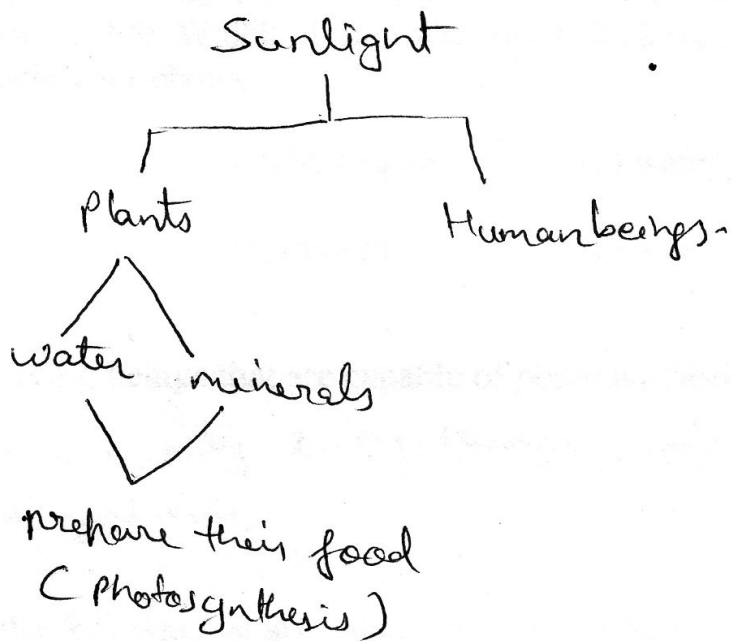 Sunlight
Plants
Human beings.
water minerals
prepare their food
(photosynthesis)